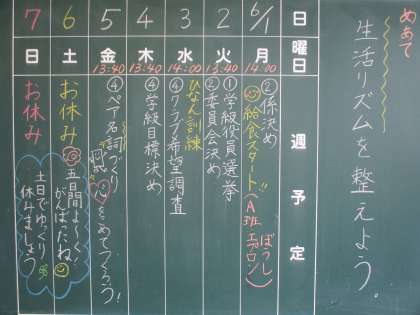 めあて
生活リズムを整えよう。
日 曜日 週予定
6/1 月 14:00 ②係決め
給食スタート!!(A 3/11 ぼうし エプロン)
2 火 13:40 ①学級役員選挙
②委員会決め
3 水 14:00 ひなん訓練
④クラブ希望調査
4 木 13:40 ④学級目標決め
5 金 13:40 ④ペア名詞づくり
心をこめてつくろう!
6 土 お休み
五日間よ〜く!がんばったね
7 日 お休み
土日でゆっくり休みましょう